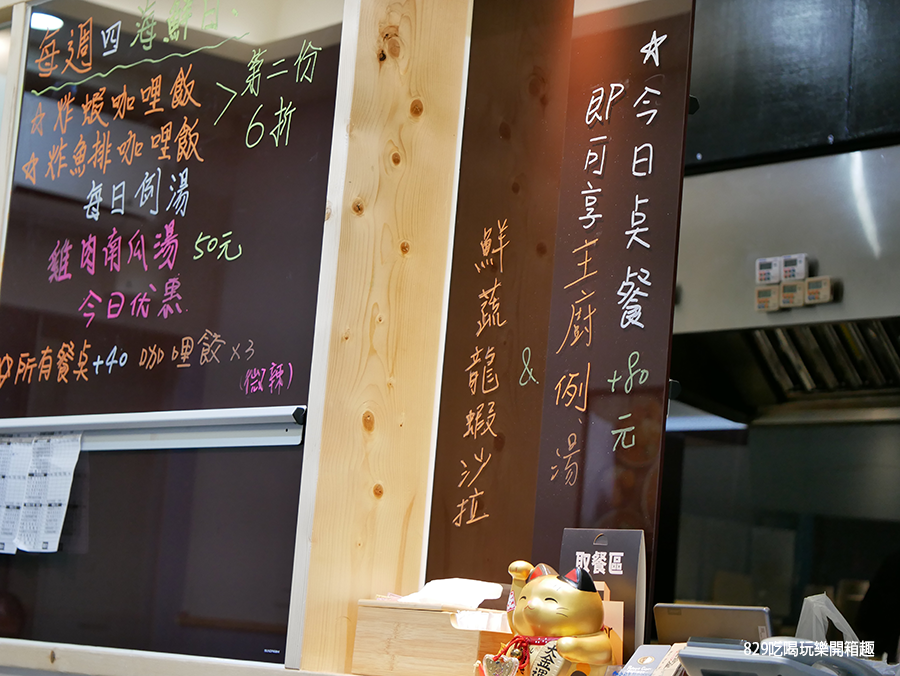 每週四海鮮日.
☆炸蝦咖哩飯
☆炸魚排咖哩飯
>第二份
6折
每日例湯
雞肉南瓜湯 50元
今日优惠
所有餐桌+40 咖哩餃x3
(微辣)
☆今日桌餐+80元
即可享主廚例湯
&
鮮蔬龍蝦沙拉
取餐區
829吃喝玩樂開箱趣